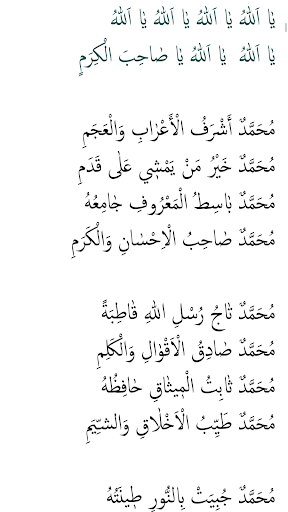 يَا اَللّٰهُ يَا اَللّٰهُ يَا اَللّٰهُ يَا اَللّٰهُ
يَا اَللّٰهُ يَا اَللّٰهُ يَا صَاحِبَ الْكِرَمِ
مُحَمَّدٌ أَشْرَفُ الْأَعْرَابِ وَالْعَجَمِ
مُحَمَّدٌ خَيْرُ مَنْ يَمْشِي عَلٰى قَدَمِ
مُحَمَّدٌ بَاسِطُ الْمَعْرُوفِ جَامِعُهُ
مُحَمَّدٌ صَاحِبُ الْاِحْسَانِ وَالْكَرَمِ
مُحَمَّدٌ تَاجُ رُسْلِ اللّٰهِ قَاطِبَةً
مُحَمَّدٌ صَادِقُ الْاَقْوَالِ وَالْكَلِمِ
مُحَمَّدٌ ثَابِتُ الْمِيثَاقِ حَافِظُهُ
مُحَمَّدٌ طَيِّبُ الْاَخْلَاقِ وَالشِّيَمِ
مُحَمَّدٌ جُبِيَتْ بِالنُّورِ طِينَتُهُ